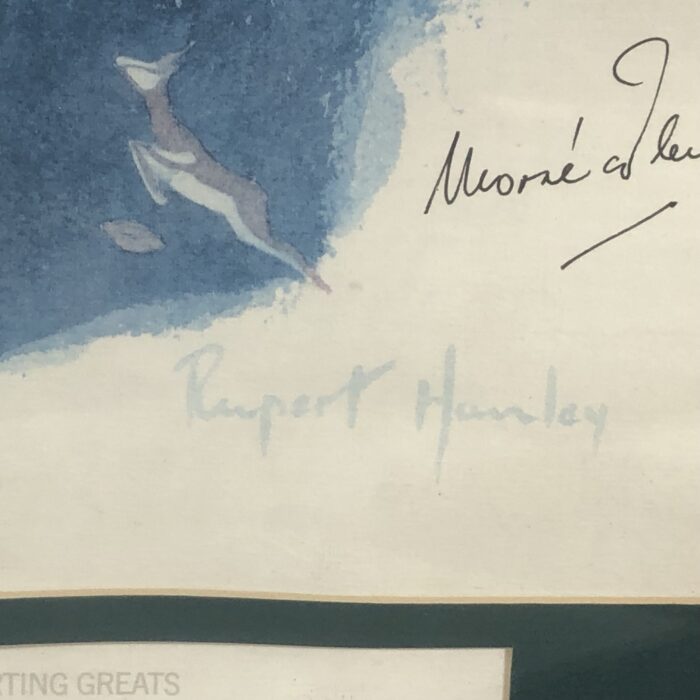 Morné du Ple
Rupert Hanley
RTING GREATS